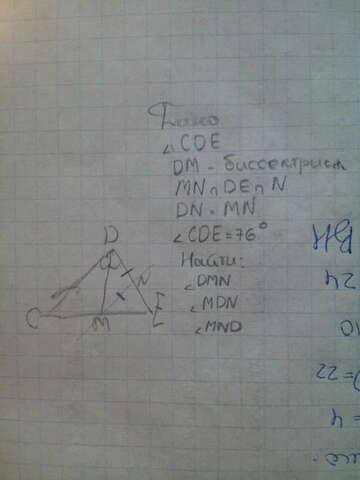 Дано
∠CDE
DM - биссектриса
MN ∩ DE ∩ N
DN = MN
∠CDE = 76°
Найти:
∠DMN
∠MDN
∠MND
D
N
C
M
E
ВН
24
10
=22
=4